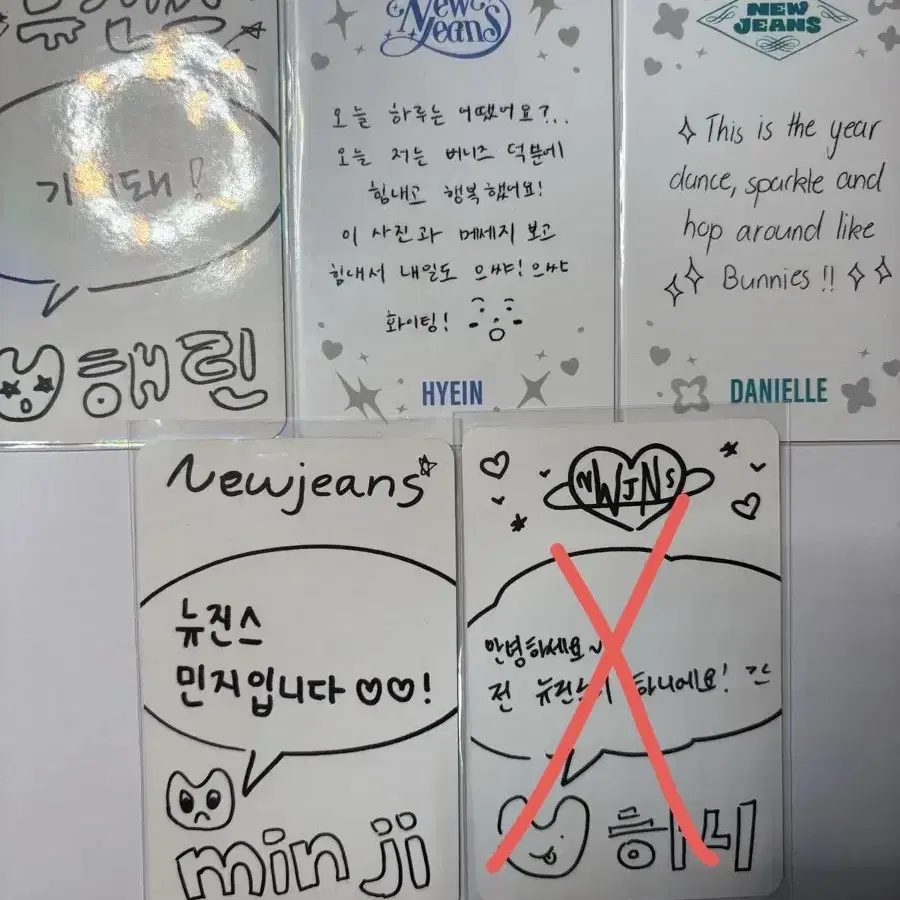 뉴진스
기대돼!
해린
New Jeans
오늘 하루는 어땠어요?..
오늘 저는 버니즈 덕분에
힘내고 행복했어요!
이 사진과 메세지 보고
힘내서 내일도 으쌰! 으쌰
화이팅!
HYEIN
NEW JEANS
This is the year
dance, sparkle and
hop around like
Bunnies !!
DANIELLE
Newjeans
뉴진스
민지입니다 ♡♡!
min ji
NWJNS
안녕하세요
전 뉴진스의 하니에요!
하니